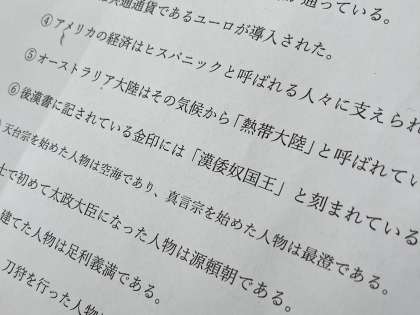 通っている。
共通通貨であるユーロが導入された。
④アメリカの経済はヒスパニックと呼ばれる人々に支えられ
⑤オーストラリア大陸はその気候から「熱帯大陸」と呼ばれてい
⑥後漢書に記されている金印には「漢倭奴国王」と刻まれている
天台宗を始めた人物は空海であり、真言宗を始めた人物は最澄である。
士で初めて太政大臣になった人物は源頼朝である。
建てた人物は足利義満である。
刀狩を行った人物